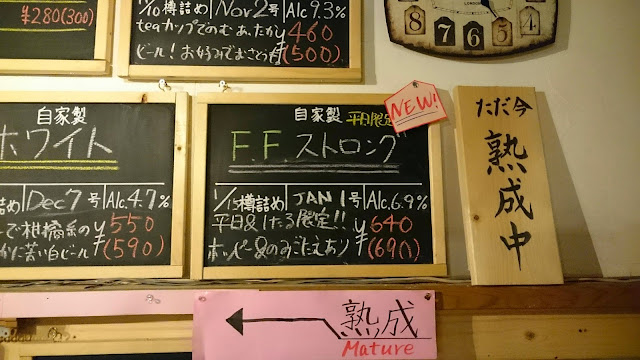 ¥280(300)
1/10 樽詰め Nov 2号 Alc 9.3%
teaカップでのむ あったか ¥460
ビール! お好みでおさとうを (500)
LONDON
8 7 6 5 4
自家製
ホワイト
詰め Dec 7号 Alc. 4.7%
で柑橘系の ¥550
かに苦い白ビール (590)
自家製 平日限定
NEW!
F.F. ストロング
1/15 樽詰め JAN 1号 Alc. 6.9%
平日&ほたる限定!! ¥640
ホッピー&のみごたえあり (690)
ただ今
熟成中
熟成
Mature